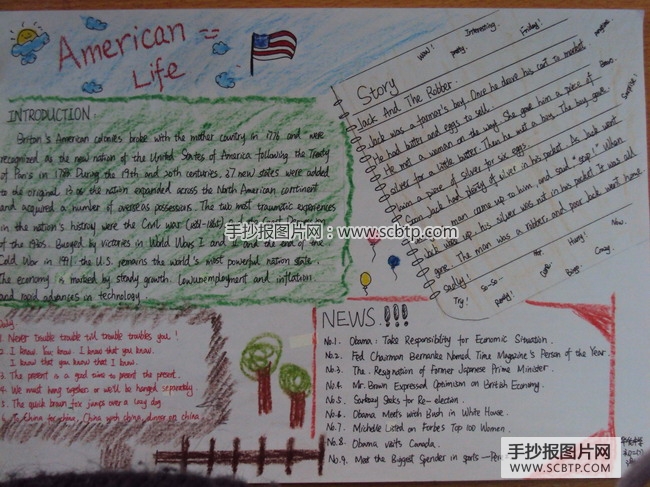 American Life
INTRODUCTION:
Briton's American colonies broke with the mother country in 1776 and were
recognized as the new nation of the United States of America following the Treaty
of Paris in 1783. During the 19th and 20th centuries, 27 new states were added
to the original 13 as the nation expanded across the North American continent
and acquired a number of overseas possessions. The two most traumatic experiences
in the nation's history were the Civil war
of the 1930s. Buoyed by victories in World Wars I and II and the end of the
Cold War in 1991, the U.S. remains the world's most powerful nation state.
The economy is marked by steady growth. Low unemployment and inflation
and rapid advances in technology
Story
Jack And The Robber.
Jack was a farmer's boy. Once he drove his cart to market
He had butter and eggs to sell.
He met a woman on the way. She gave him a piece of
silver for a little butter. Then he met a boy. The boy gave
him a piece of silver for six eggs.
Soon Jack had plenty of silver in his pocket. As Jack went
man came up to him, and said "Stop!" When
Jack woke up, his silver was not in his pocket. It was all
gone. The man was a robber, and poor Jack went home
sadly!
WOW!
Interesting
party
Friday!
Surprise!
Try!
So-so
Ready!
Hurry!
Bingo
Crazy
Now
手抄报图片网
www.scbtp.com
1. Never trouble trouble till trouble troubles you!
2. I know. You know. I know that you know.
I know that you know that I know.
3. The present is a good time to present the present.
4. We must hang together or we'll be hanged separately
5. The quick brown fox jumps over a lazy dog.
NEWS.!!!
No.1. Obama: Take Responsibility for Economic Situation.
No.2. Fed Chairman Bernanke Named Time Magazine's Person of the Year.
No.3. The Resignation of Former Japanese Prime Minister.
No.4. Mr. Brown Expressed Optimism on British Economy.
No.5. Sarkozy Seeks for Re-election.
No.6. Obama Meets with Bush in White House.
No.7. Michelle Listed on Forbes Top 100 Women.
No.8. Obama visits Canada.
No.9. Meet the Biggest Spender in sports —
手抄报图片网
WWW.SCBTP.COM